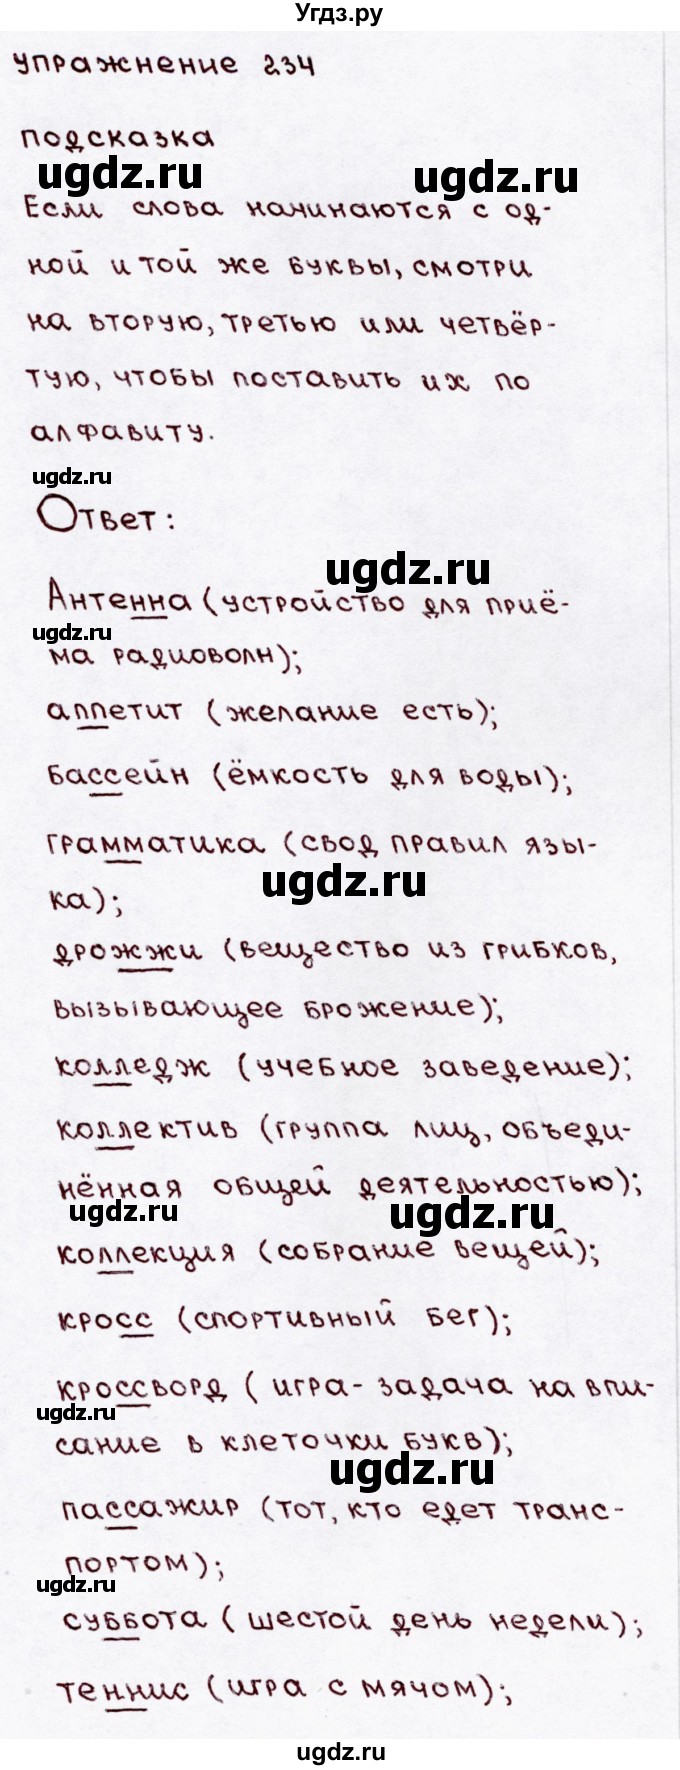 Угдз.ру
упражнение 234
подсказка
ugdz.ru ugdz.ru
Если слова начинаются с од-
ной и той же буквы, смотри
на вторую, третью или четвёр-
тую, чтобы поставить их по
алфавиту.
ugdz.ru
Ответ:
ugdz.ru
Антенна (устройство для приё-
ugdz.ru
ма радиоволн);
аппетит (желание есть);
бассейн (ёмкость для воды);
грамматика (свод правил язы-
ugdz.ru
ка);
дрожжи (вещество из грибков,
вызывающее брожение);
колледж (учебное заведение);
коллектив (группа лиц, объеди-
нённая общей деятельностью);
ugdz.ru ugdz.ru
коллекция (собрание вещей);
кросс (спортивный бег);
кроссворд (игра-задача на впи-
ugdz.ru
сание в клеточки букв);
ugdz.ru
пассажир (тот, кто едет транс-
портом);
ugdz.ru
суббота (шестой день недели);
теннис (игра с мячом);
ugdz.ru